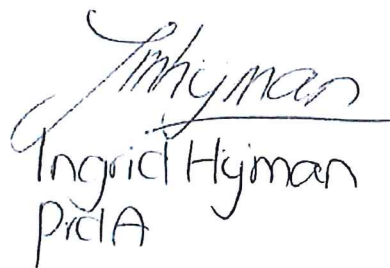 Imhyman
Ingrid Hyman
PrclA